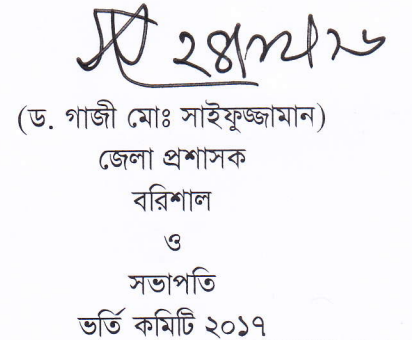 (ড. গাজী মোঃ সাইফুজ্জামান)
জেলা প্রশাসক
বরিশাল
ও
সভাপতি
ভর্তি কমিটি ২০১৭